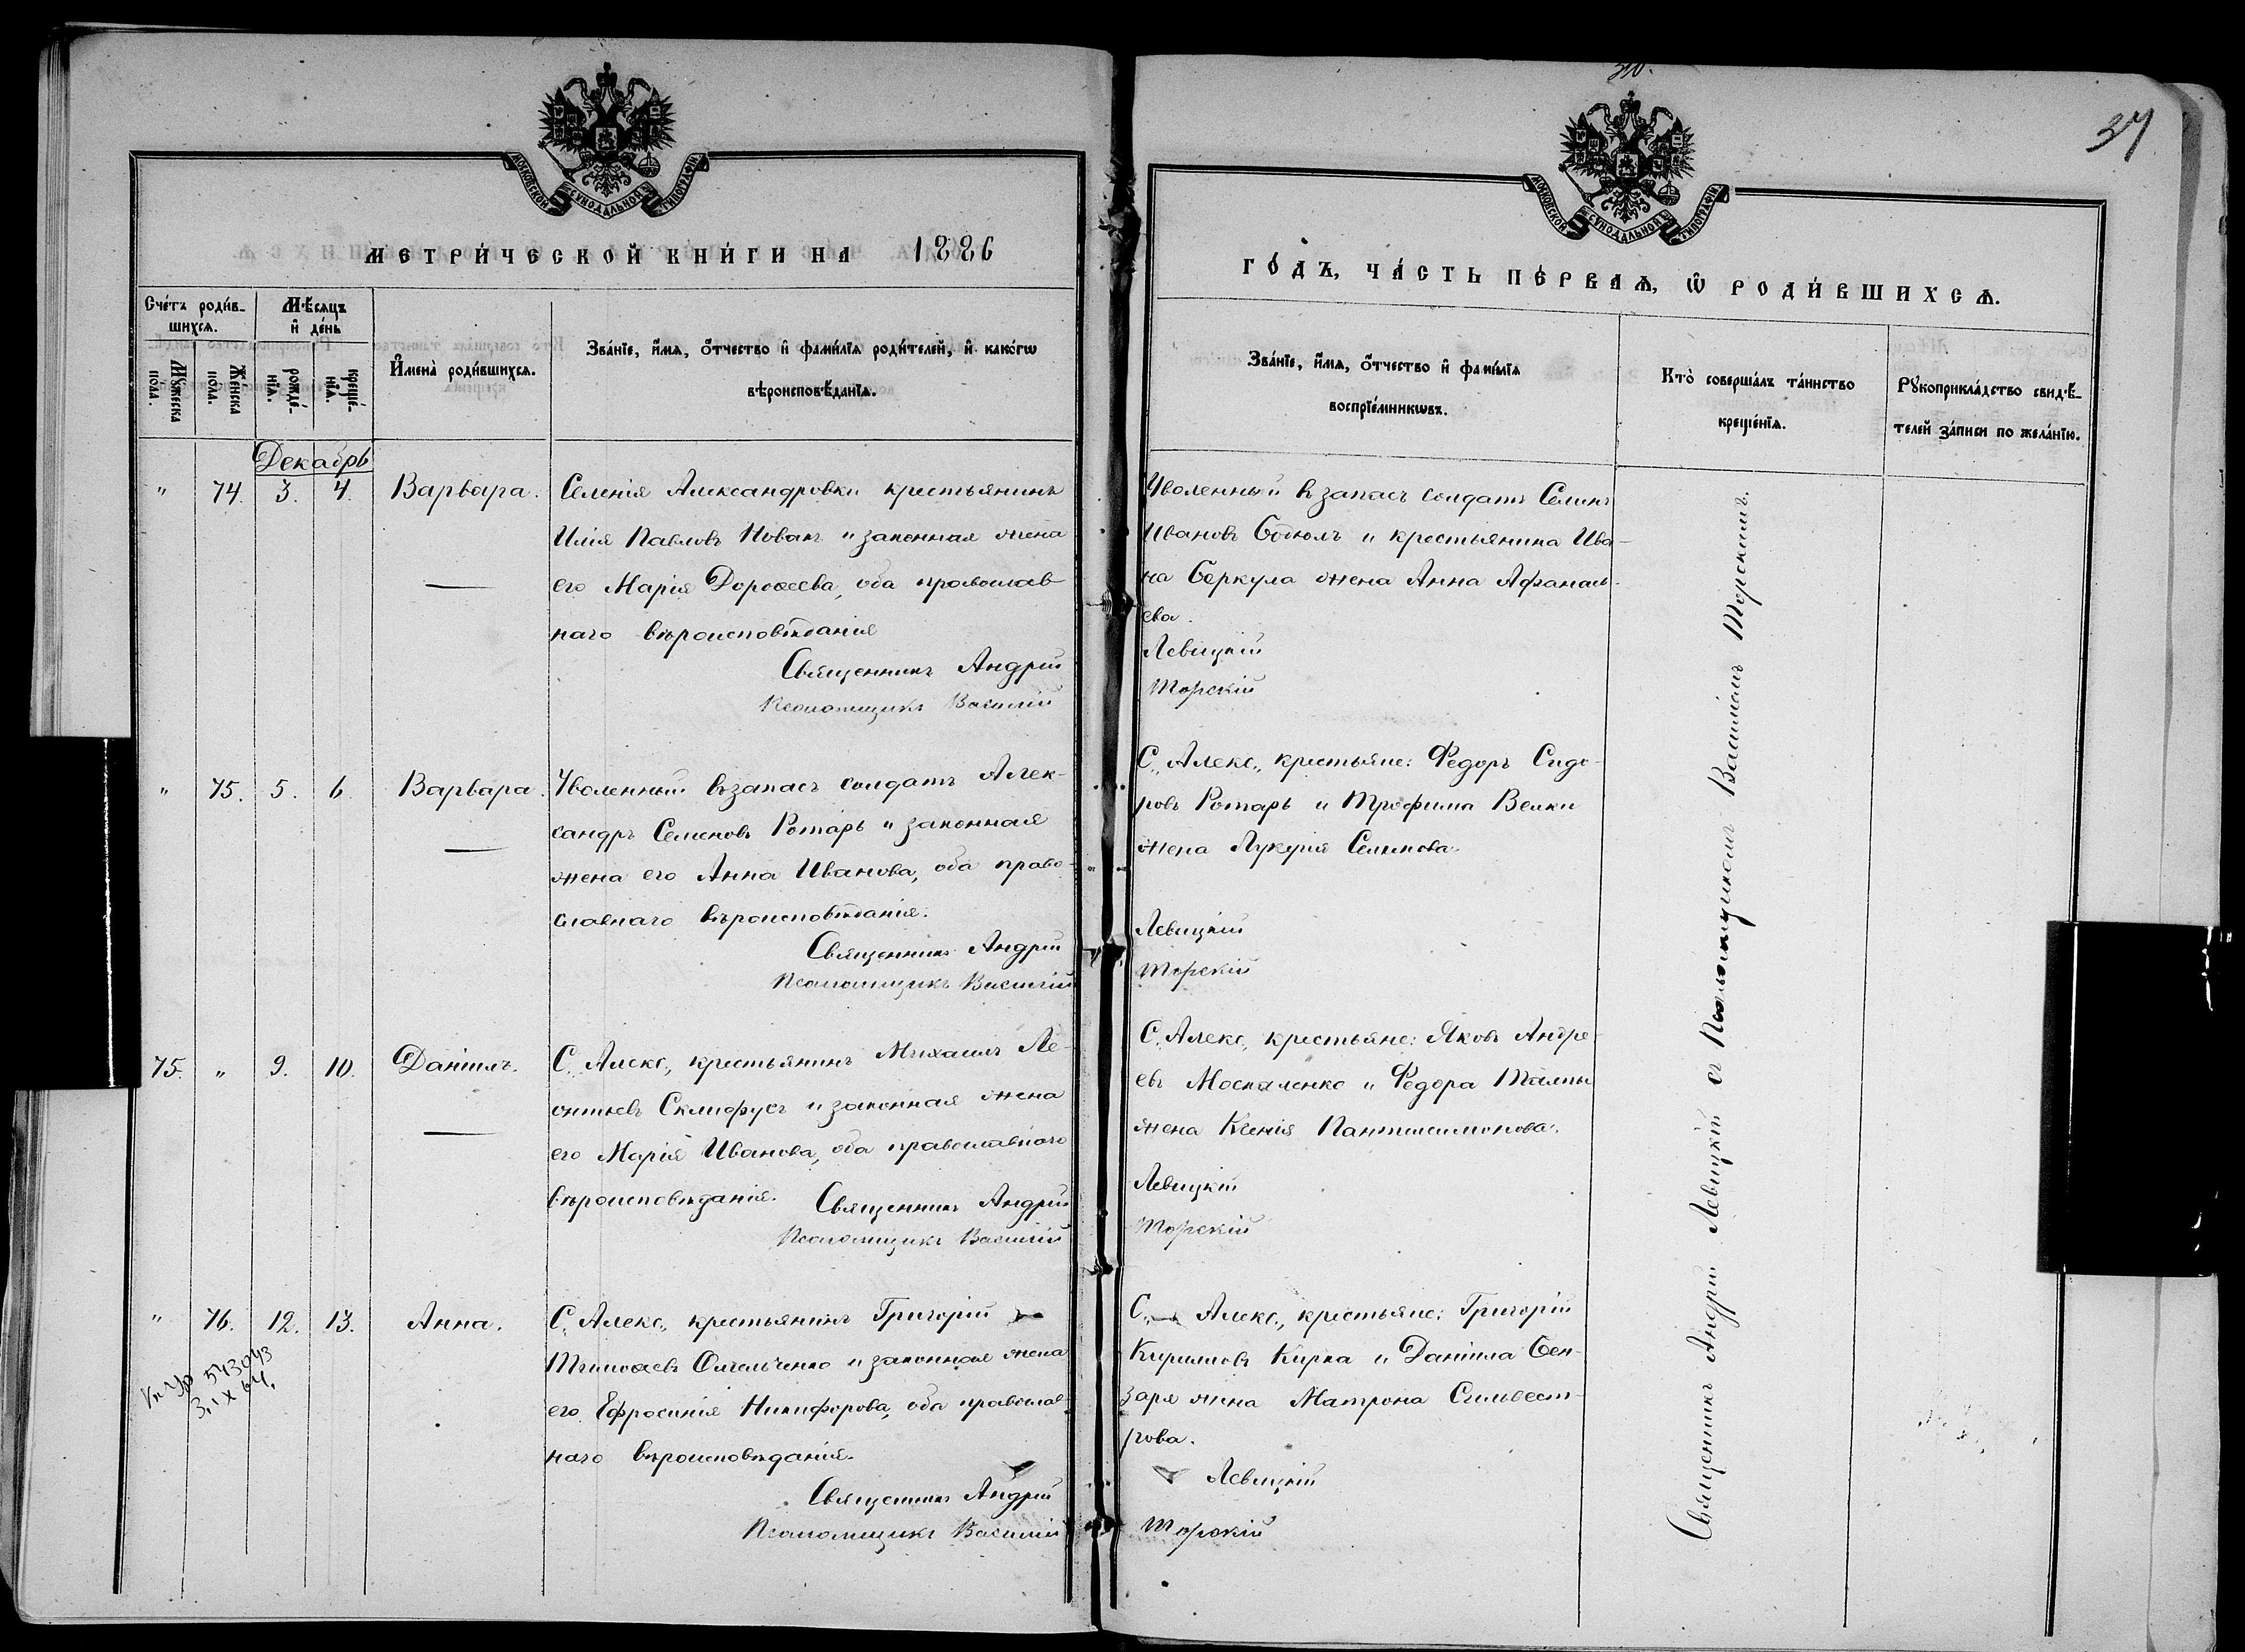 МОСКОВСКОЙ СѴНОДАЛЬНОЙ ТИПОГРАФІИ
МЕТРИ́ЧЕСКОЙ КНИ́ГИ НА 1886
Сче́тъ роди́в-
шихсѧ.
Мѣ́сяцъ
и҆ де́нь
Мꙋ́жеска
пола.
Же́нска
пола.
рожде́-
нїѧ.
креще́-
нїѧ.
И҆мена̀ роди́вшихсѧ.
Зва́нїе, и҆́мѧ, ѻ҆́тчество и҆ фами́лїѧ роди́телей, и҆ како́гѡ
вѣроисповѣ́данїѧ.
Декабрь
" 74. 3. 4. Варвара. Селенія Александровки крестьянинъ
Илія Павловъ Новакъ и законная жена
его Марія Дороѳеева, оба православ
наго вѣроисповѣданія
Священникъ Андрій
Псаломщикъ Василій
" 75. 5. 6. Варвара. Уволенный въ запасъ солдатъ Алек-
сандръ Семеновъ Ротарь и законная
жена его Анна Иванова, оба право-
славнаго вѣроисповѣданія.
Священникъ Андрій
Псаломщикъ Василій
75. " 9. 10. Даніилъ. С. Алекс., крестьянинъ Михаилъ Ле-
онтьевъ Склифусъ и законная жена
его Марія Иванова, оба православнаго
вѣроисповѣданія. Священникъ Андрій
Псаломщикъ Василій
" 76. 12. 13. Анна. С. Алекс., крестьянинъ Григорій
Тимоѳеевъ Омельченко и законная жена
его Ефросинія Никифорова, оба православ-
наго вѣроисповѣданія.
Священникъ Андрій
Псаломщикъ Василій
543043
3. IX 64.
37
МОСКОВСКОЙ СѴНОДАЛЬНОЙ ТИПОГРАФІИ
ГО́ДЪ, ЧА́СТЬ ПЕ́РВАѦ, Ѡ҆ РОДИ́ВШИХСѦ.
Зва́нїе, и҆́мѧ, ѻ҆́тчество и҆ фами́лїѧ
воспрїе́мникѡвъ.
Кто̀ соверша́лъ та́инство
креще́нїѧ.
Рꙋкоприкла́дство свидѣ́-
телей за́писи по жела́нїю.
Уволенный въ запасъ солдатъ Семенъ
Ивановъ и крестьянина Ива-
на Беркула жена Анна Афанась-
ева.
Левицкій
Морскій
С. Алекс., крестьяне: Федоръ Сидо-
ровъ Ротарь и Трофима Велки
жена Лукерія Семенова.
Левицкій
Морскій
С. Алекс., крестьяне: Яковъ Андре-
евъ Москаленко и Федора
жена Ксенія Пантилимонова.
Левицкій
Морскій
С. Алекс., крестьяне: Григорій
Кириловъ Кирка и Даніила Бен-
заря жена Матрона Сильвест-
рова.
Левицкій
Морскій
Священникъ Андрій Левицкій съ Псаломщикомъ Василіемъ Морскимъ.